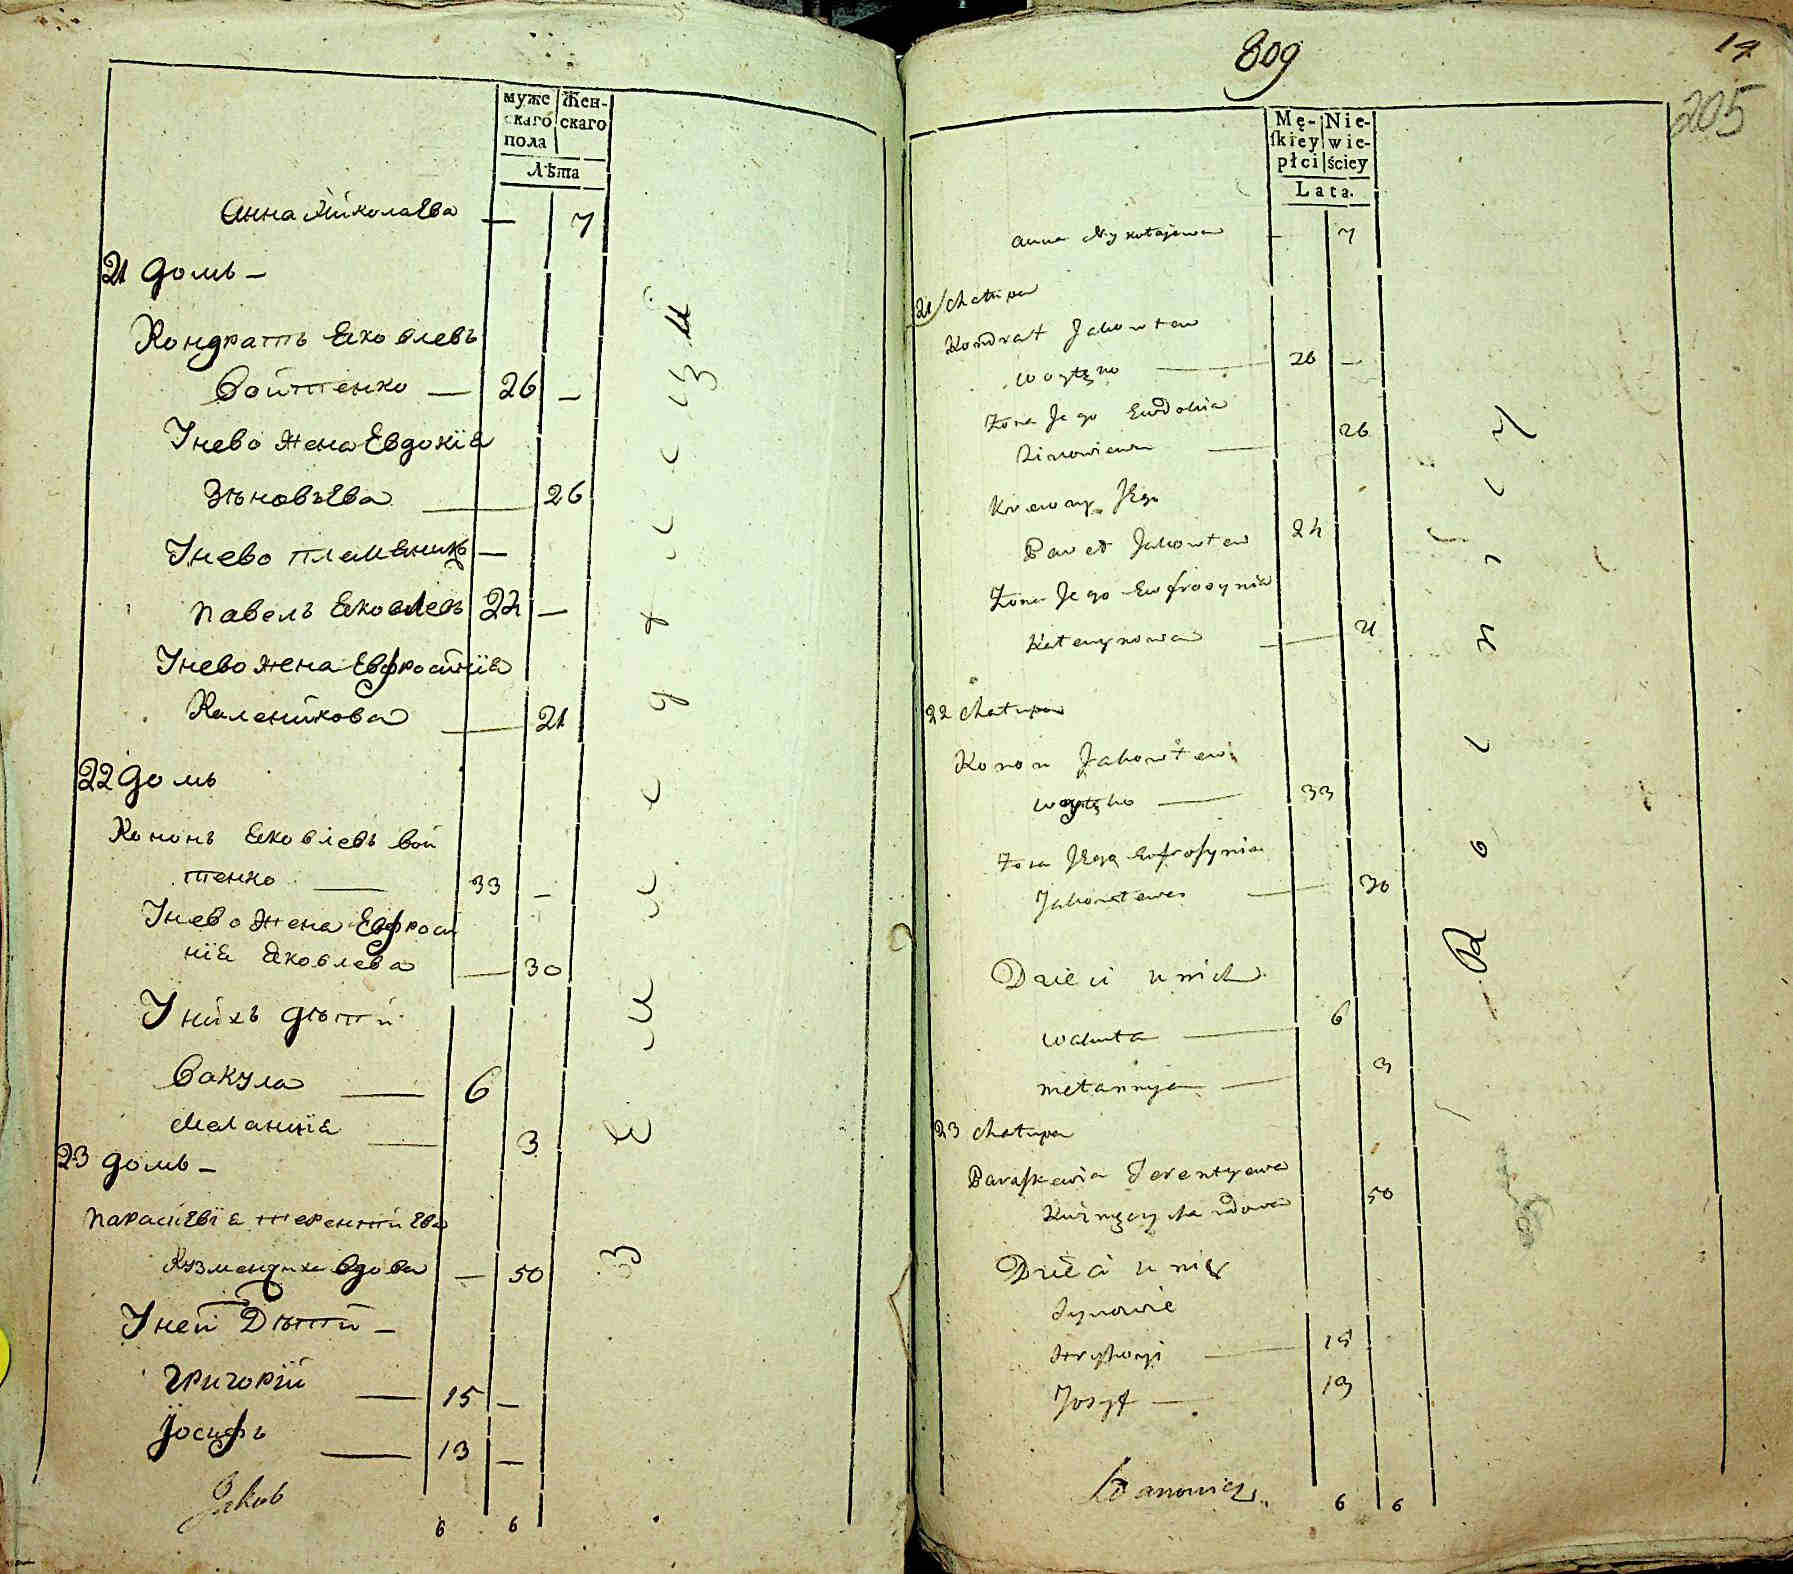 муже Жен-
скаго скаго
пола
Лѣта
Анна Миколаева — 7
21 домъ —
Кондратъ Яковлевъ
Войтенко — 26 —
Унево жена Евдокія
Зѣновьева 26
Унево племяникъ —
Павелъ Яковлевъ 24 —
Унево жена Евфросинія
Калеников̾а 21
22 домъ
Кононъ Яковлевъ Вой
тенко — 33 —
Унево жена Евфроси
нія Яковлева — 30
Унихъ дѣти
Вакула — 6
Меланнія — 3
23 домъ —
Парасцевія Терентиева
Кузменчиха вдова — 50
Уней Дѣти —
Григорій — 15 —
Іосифъ — 13 —
Jakub
6 6
809
14
205
Mę- Nie-
skiey wie-
płci ściey
Lata.
Anna Mykołajewa — 7
21 Chałupa
Kondrat Jakowlew
Woytęko — 26 —
Żona Jego Ewdokia
Zinowiewa — 26
Krewny Jego
Paweł Jakowlew 24
Żona Jego Ewfrosynia
21
22 Chałupa
Konon Jakowlew
Woytęko — 33
Żona Jego Eufrosynia
Jakowlewa — 30
Dzieci u nich
Wakuła — 6
Mełannya — 3
23 Chałupa
Paraskewia Terentyewa
Kuzmęczycha wdowa 50
Dzieci u niey
Synowie
Hryhoryi — 15
Josyf — 13
6 6